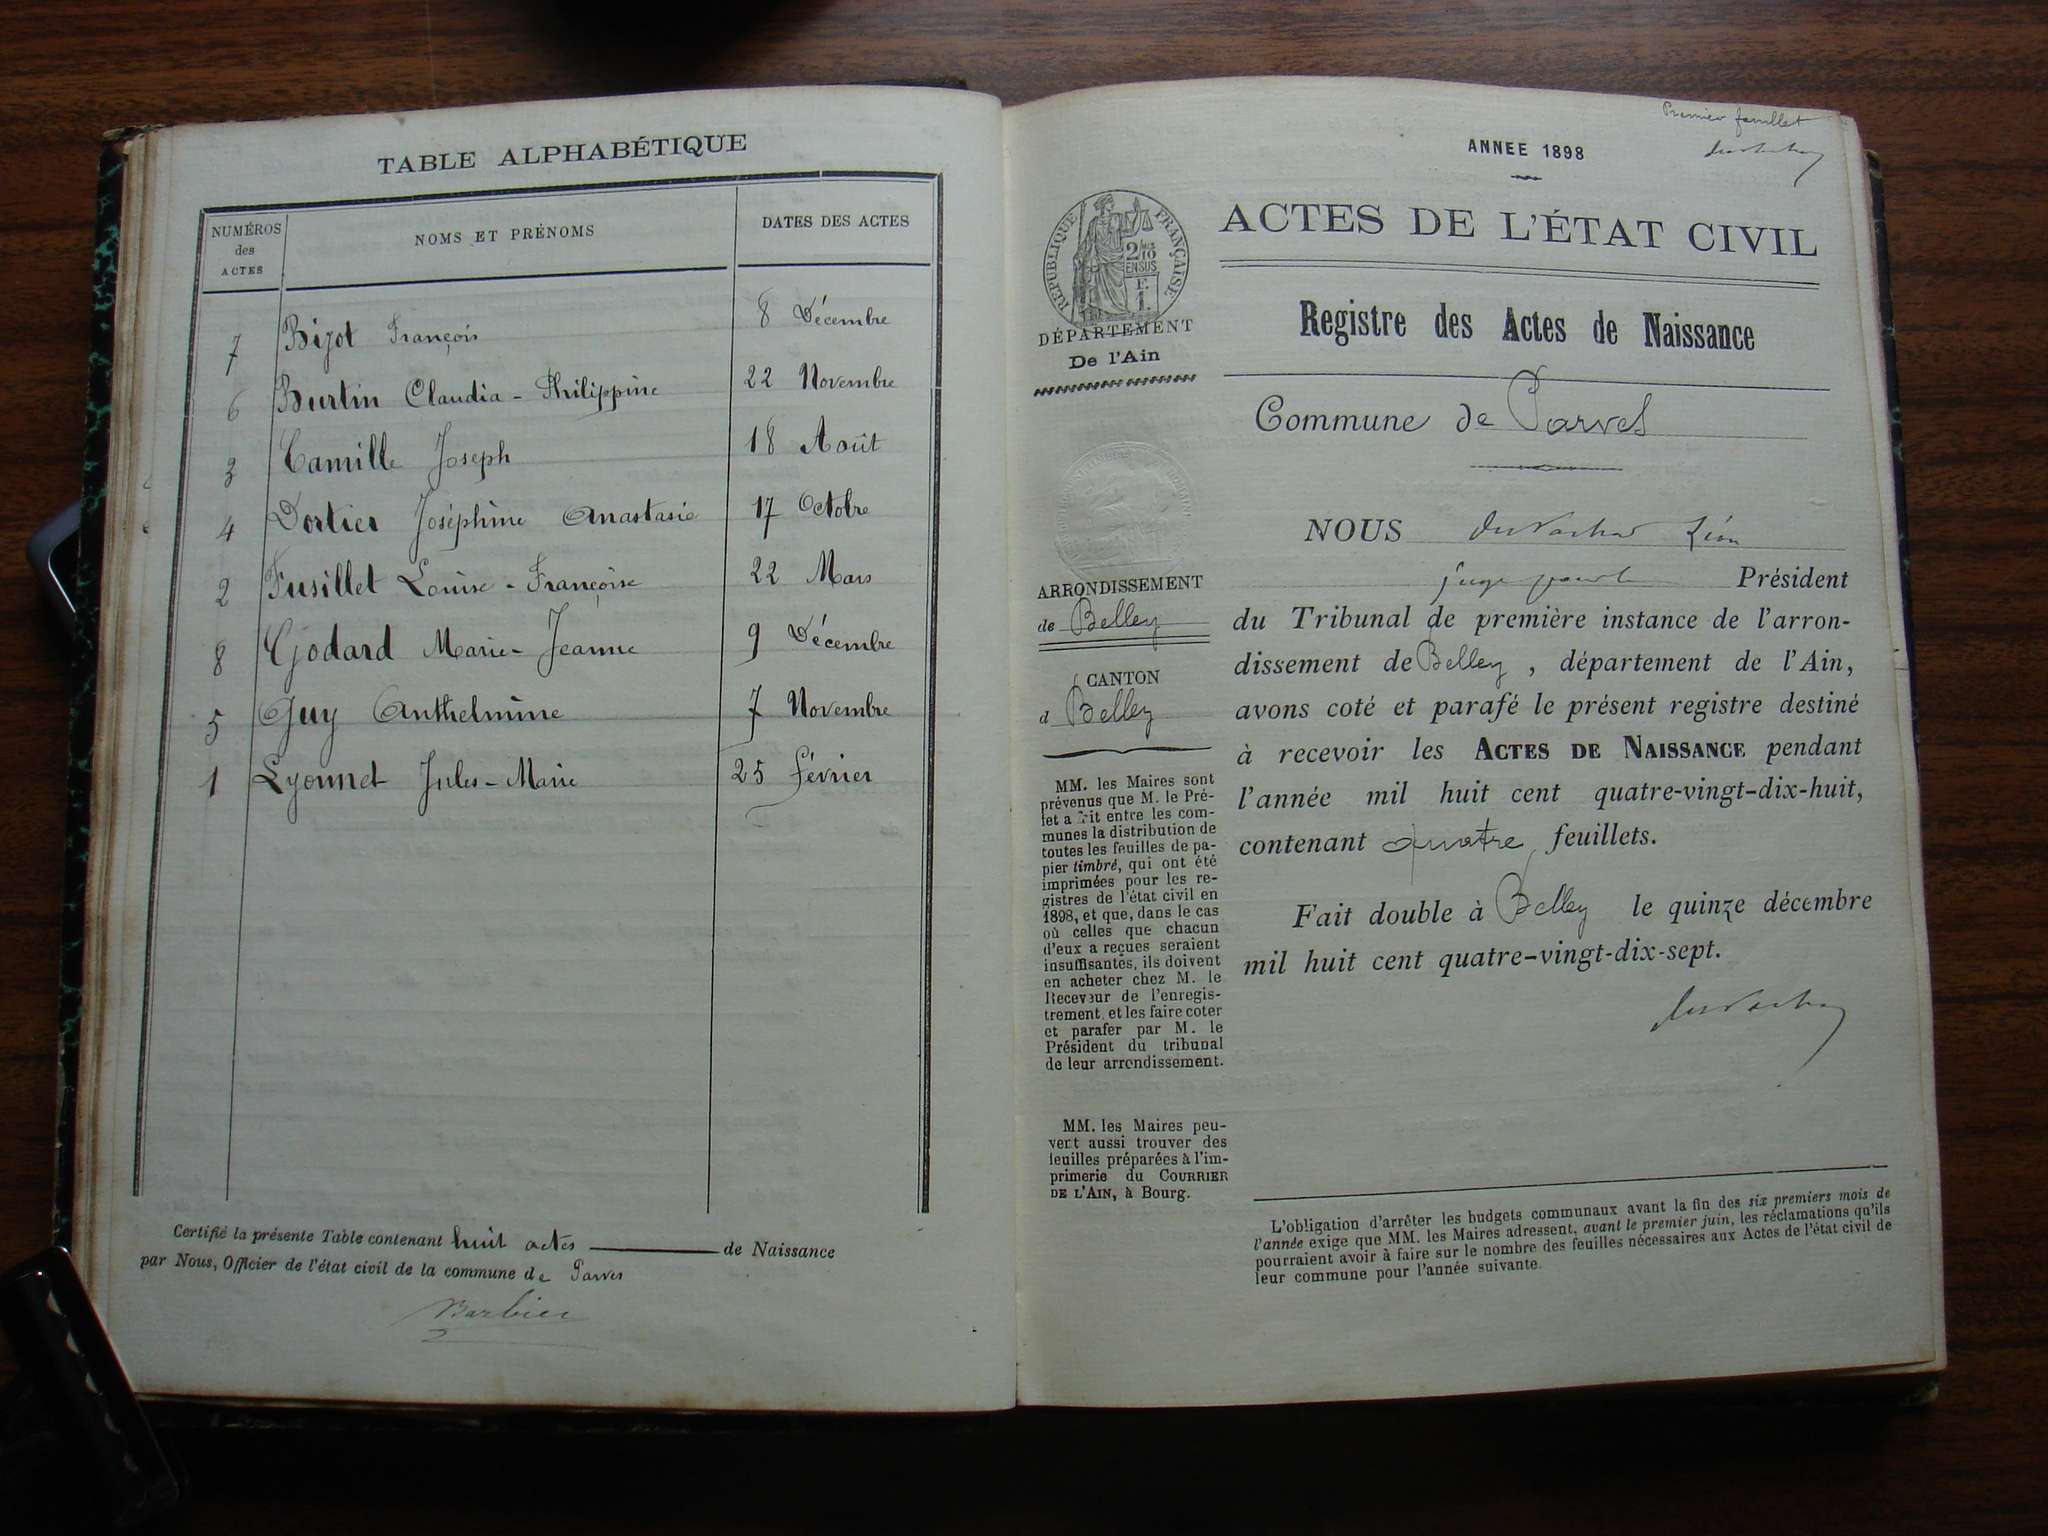 TABLE ALPHABÉTIQUE
NUMÉROS des ACTES
NOMS ET PRÉNOMS
DATES DES ACTES
7 Bizot François 8 Décembre
6 Burtin Claudia - Philippine 22 Novembre
3 Camille Joseph 18 Août
4 Dortier Joséphine Anastasie 17 Octobre
2 Fusillet Louise - Françoise 22 Mars
8 Godard Marie - Jeanne 9 Décembre
5 Guy Anthelmine 7 Novembre
1 Lyonnet Jules - Marie 25 Février
Certifié la présente Table contenant huit actes de Naissance
par Nous, Officier de l'état civil de la commune de Parves
Barbier
Premier feuillet
ANNEE 1898
RÉPUBLIQUE FRANÇAISE
2/10 EN SUS
ACTES DE L'ÉTAT CIVIL
DÉPARTEMENT
De l'Ain
Registre des Actes de Naissance
Commune de Parves
ARRONDISSEMENT
de Belley
CANTON
d Belley
MM. les Maires sont
prévenus que M. le Pré-
fet a fait entre les com-
munes la distribution de
toutes les feuilles de pa-
pier timbré, qui ont été
imprimées pour les re-
gistres de l'état civil en
1898, et que, dans le cas
où celles que chacun
d'eux a reçues seraient
insuffisantes, ils doivent
en acheter chez M. le
Receveur de l'enregis-
trement, et les faire coter
et parafer par M. le
Président du tribunal
de leur arrondissement.
MM. les Maires peu-
vent aussi trouver des
feuilles préparées à l'im-
primerie du COURRIER
DE L'AIN, à Bourg.
NOUS Léon
juge pour le Président
du Tribunal de première instance de l'arron-
dissement de Belley, département de l'Ain,
avons coté et parafé le présent registre destiné
à recevoir les ACTES DE NAISSANCE pendant
l'année mil huit cent quatre-vingt-dix-huit,
contenant quatre feuillets.
Fait double à Belley le quinze décembre
mil huit cent quatre-vingt-dix-sept.
L'obligation d'arrêter les budgets communaux avant la fin des six premiers mois de
l'année exige que MM. les Maires adressent, avant le premier juin, les réclamations qu'ils
pourraient avoir à faire sur le nombre des feuilles nécessaires aux Actes de l'état civil de
leur commune pour l'année suivante.